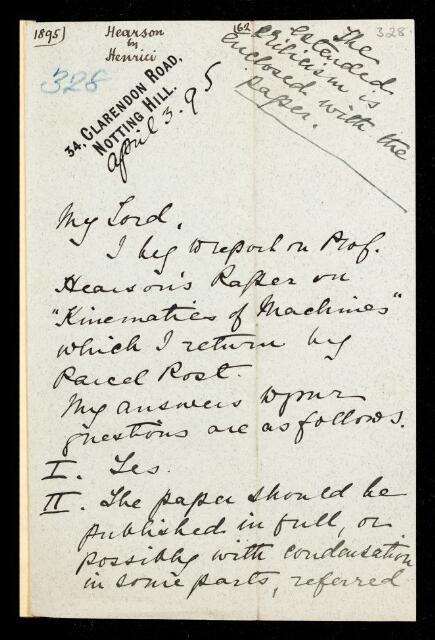 1895
Hearson
by
Henrici
162
328
328
The
extended
criticism is
enclosed with the
paper.
34, CLARENDON ROAD,
NOTTING HILL.
April 3. 95
My Lord,
I beg to report on Prof.
Hearson's Paper on
"Kinematics of Machines"
which I return by
Parcel Post.
My answers to your
questions are as follows.
I. Yes.
II. The paper should be
published in full, or
possibly with condensation
in some parts, referred